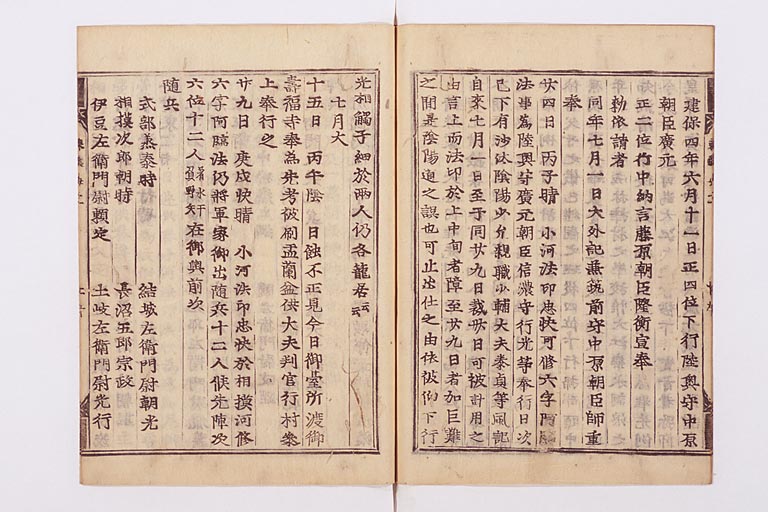 建保四年六月十一日正四位下行陸奥守中原
朝臣廣元
正二位行中納言藤原朝臣隆衡宣奉
勅依請者
同年七月一日大外記兼筑前守中原朝臣師重
奉
廿四日 丙子晴 小河法印忠快可修六字河臨
法事爲陸奥守廣元朝臣信濃守行光等奉行日次
已下有沙汰陰陽少允親職少輔大夫泰貞等風記
自來七月一日至于同廿九日裁毋日可被計用之
由言上而法印於上中旬者障至廿九日者加巨難
之間是陰陽道之誤也可止出仕之由依彼仰下行
光相觸子細於兩人仍各籠居云云
七月大
十五日 丙午陰 日蝕不正見今日御臺所渡御
壽福寺奉爲先考被刷盂蘭盆供大夫判官行村參
上奉行之
廿九日 庚戌快晴 小河法印忠快於相摸河修
六字河臨法仍將軍家御出隨兵十二人候先陣次
六位十二人在御輿前次
隨兵
式部丞泰時 結城左衛門尉朝光
相摸次郎朝時 長沼五郎宗政
伊豆左衛門尉頼定 土岐左衛門尉光行